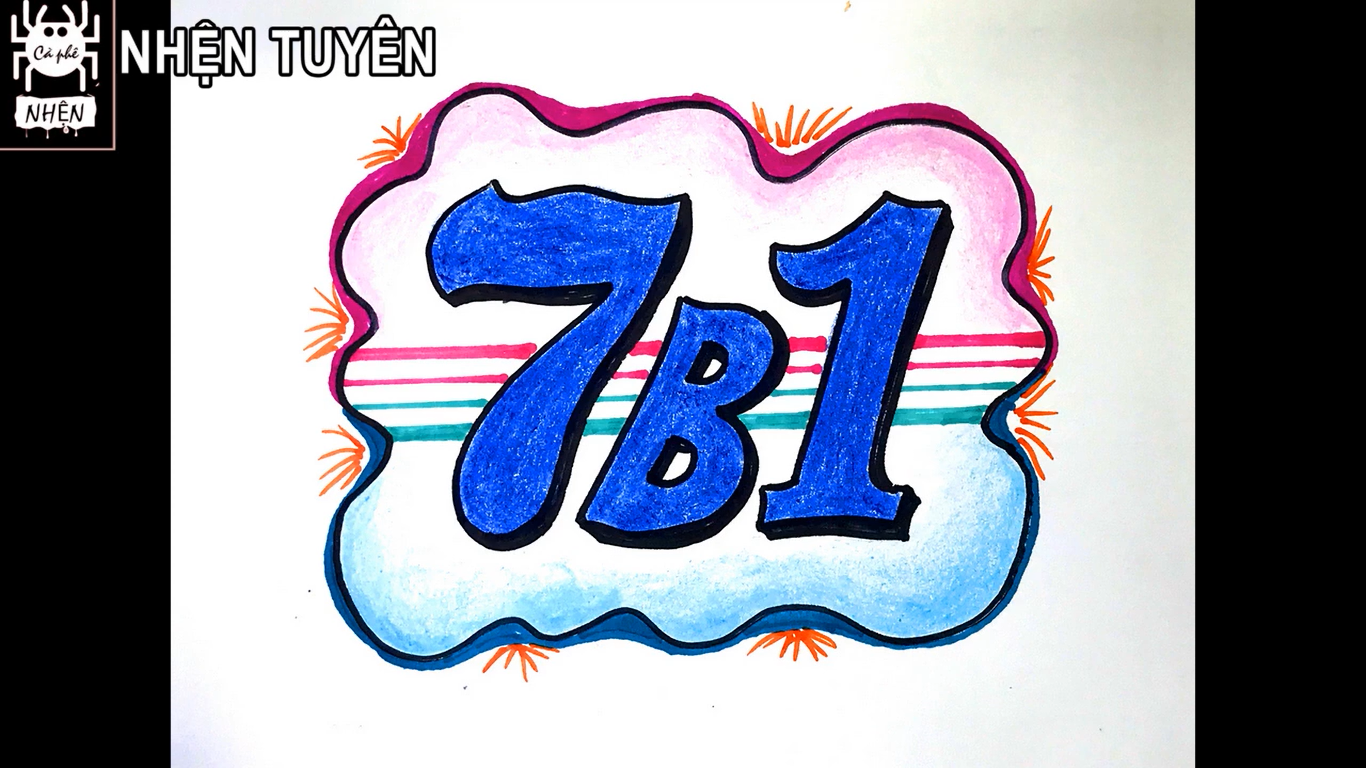 Cà phê
NHỆN
NHỆN TUYÊN
7B1